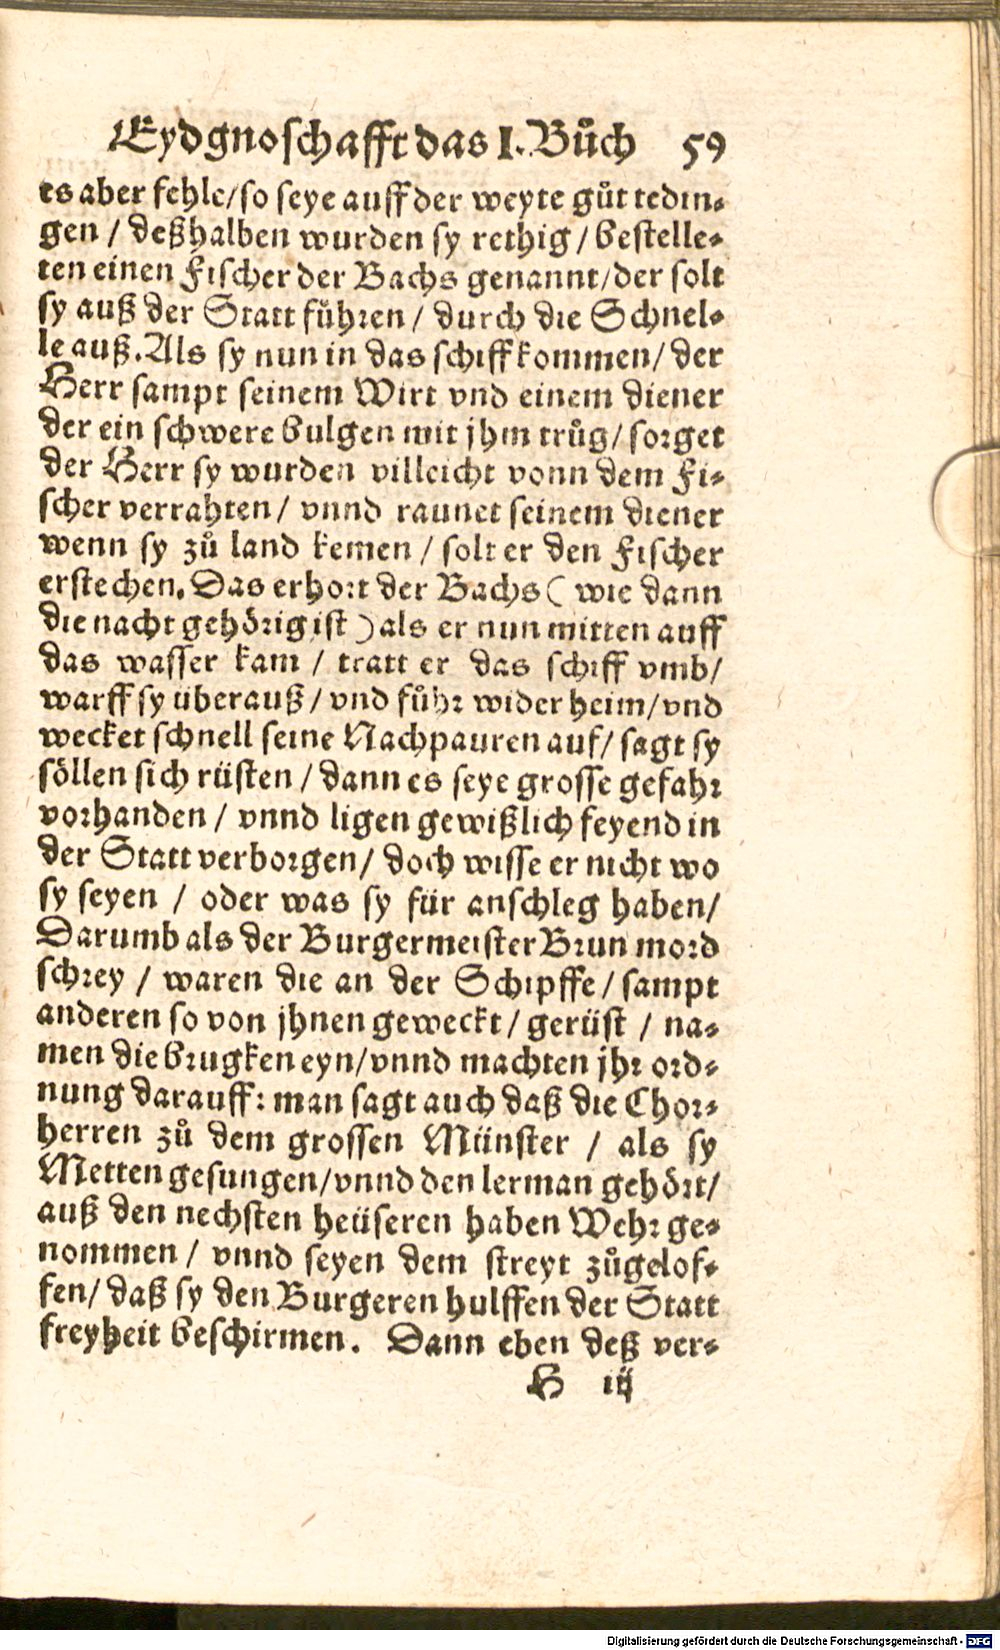 Eydgnoschafft das I. Bůch 59
es aber fehle/so seye auff der weyte gůt tedin⸗
gen / deßhalben wurden sy rethig / bestelle⸗
ten einen Fischer der Bachs genannt/der solt
sy auß der Statt fůhren / durch die Schnel⸗
le auß. Als sy nun in das schiff kommen/ der
Herr sampt seinem Wirt vnd einem diener
der ein schwere bulgen mit jhm trůg/ sorget
der Herr sy wurden villeicht vonn dem Fi⸗
scher verrahten / vnnd raunet seinem diener
wenn sy zů land kemen / solt er den Fischer
erstechen. Das erhort der Bachs ( wie dann
die nacht gehörig ist ) als er nun mitten auff
das wasser kam / tratt er das schiff vmb/
warff sy überauß / vnd fůhr wider heim/vnd
wecket schnell seine Nachpauren auf/ sagt sy
söllen sich rüsten / dann es seye grosse gefahr
vorhanden / vnnd ligen gewißlich feyend in
der Statt verborgen/ doch wisse er nicht wo
sy seyen / oder was sy für anschleg haben/
Darumb als der Burgermeister Brun mord
schrey / waren die an der Schipffe / sampt
anderen so von jhnen geweckt / gerüst / na⸗
men die brugken eyn/vnnd machten jhr ord⸗
nung darauff: man sagt auch daß die Chor⸗
herren zů dem grossen Münster / als sy
Metten gesungen/vnnd den lerman gehört/
auß den nechsten heüseren haben Wehr ge⸗
nommen / vnnd seyen dem streyt zůgelof⸗
fen/ daß sy den Burgeren hulffen der Statt
freyheit beschirmen. Dann eben deß ver⸗
H iij
Digitalisierung gefördert durch die Deutsche Forschungsgemeinschaft - DFG